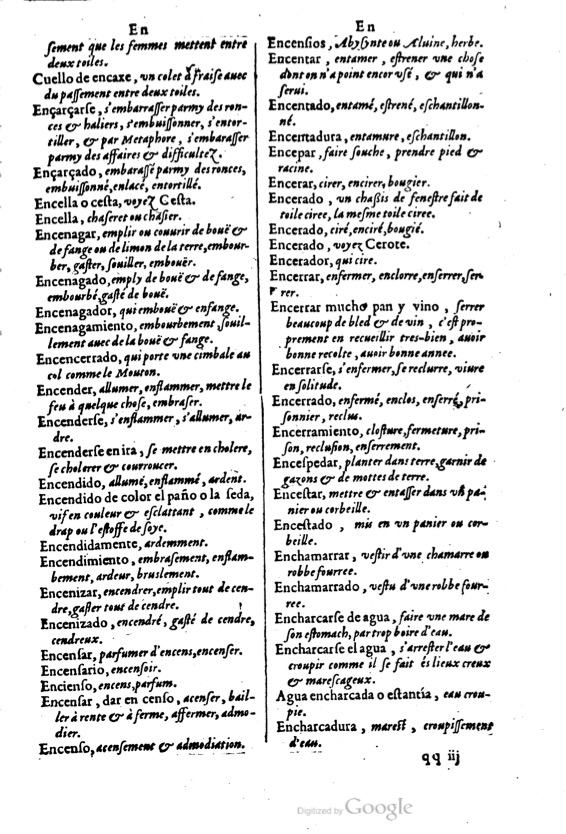 En
ſement que les femmes mettent entre
deux toiles.
Cuello de encaxe, vn colet à fraiſe auec
du paſſement entre deux toiles.
Ençarçarſe, s'embarraſſer parmy des ron-
ces & haliers, s'embuiſſonner, s'entor-
tiller, & par Metaphore, s'embaraſſer
parmy des affaires & difficultez.
Ençarçado, embaraſſé parmy des ronces,
embuiſſonné, enlacé, entortillé.
Encella o ceſta, voyez Ceſta.
Encella, chaſeret ou chaſier.
Encenagar, emplir ou couurir de bouë &
de fange ou de limon de la terre, embour-
ber, gaſter, ſouiller, embouër.
Encenagado, emply de bouë & de fange,
embourbé, gaſté de bouë.
Encenagador, qui embouë & enfange.
Encenagamiento, embourbement, ſouil-
lement auec de la bouë & fange.
Encencerrado, qui porte vne cimbale au
col comme le Mouton.
Encender, allumer, enflammer, mettre le
feu à quelque choſe, embraſer.
Encenderſe, s'enflammer, s'allumer, ar-
dre.
Encenderſe en ira, ſe mettre en cholere,
ſe cholerer & courroucer.
Encendido, allumé, enflammé, ardent.
Encendido de color el paño o la ſeda,
vif en couleur & eſclattant, comme le
drap ou l'eſtoffe de ſoye.
Encendidamente, ardemment.
Encendimiento, embraſement, enflam-
bement, ardeur, bruslement.
Encenizar, encendrer, emplir tout de cen-
dre, gaſter tout de cendre.
Encenizado, encendré, gaſté de cendre,
cendreux.
Encenſar, parfumer d'encens, encenſer.
Encenſario, encenſoir.
Encienſo, encens, parfum.
Encenſar, dar en cenſo, acenſer, bail-
ler à rente & à ferme, affermer, admo-
dier.
Encenſo, acenſement & admodiation.
En
Encenſios, Abſynte ou Aluine, herbe.
Encentar, entamer, eſtrener vne choſe
dont on n'a point encor vſé, & qui n'a
ſerui.
Encentado, entamé, eſtrené, eſchantillon-
né.
Encentadura, entamure, eſchantillon.
Encepar, faire ſouche, prendre pied &
racine.
Encerar, cirer, encirer, bougier.
Encerado, vn chaßis de feneſtre fait de
toile ciree, la meſme toile ciree.
Encerado, ciré, enciré, bougié.
Encerado, voyez Cerote.
Encerador, qui cire.
Encerrar, enfermer, enclorre, enſerrer, ſer-
rer.
Encerrar mucho pan y vino, ſerrer
beaucoup de bled & de vin, c'eſt pro-
prement en recueillir tres-bien, auoir
bonne recolte, auoir bonne annee.
Encerrarſe, s'enfermer, ſe reclurre, viure
en ſolitude.
Encerrado, enfermé, enclos, enſerré, pri-
ſonnier, reclus.
Encerramiento, cloſture, fermeture, pri-
ſon, recluſion, enſerrement.
Enceſpedar, planter dans terre, garnir de
gazons & de mottes de terre.
Enceſtar, mettre & entaſſer dans vn pa-
nier ou corbeille.
Enceſtado, mis en vn panier ou cor-
beille.
Enchamarrar, veſtir d'vne chamarre ou
robbe fourree.
Enchamarrado, veſtu d'vne robbe four-
ree.
Encharcarſe de agua, faire vne mare de
ſon eſtomach, par trop boire d'eau.
Encharcarſe el agua, s'arreſter l'eau &
croupir comme il ſe fait és lieux creux
& mareſcageux.
Agua encharcada o eſtantía, eau crou-
pie.
Encharcadura, mareſt, croupiſſement
d'eau.
qq iij
Digitized by Google